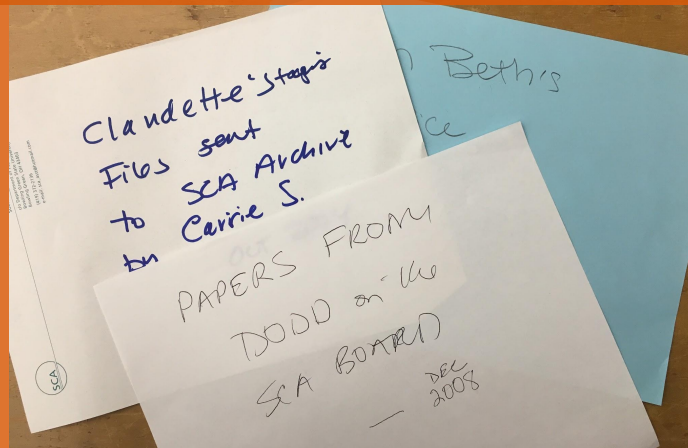 Claudette's
Files sent
to SCA Archive
by Carrie S.
Beth's
ice
PAPERS FROM
DODD on the
SCA BOARD
— DEC
2008
SCA